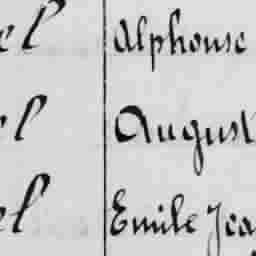 el Alphonse
el August
el Emile Jea